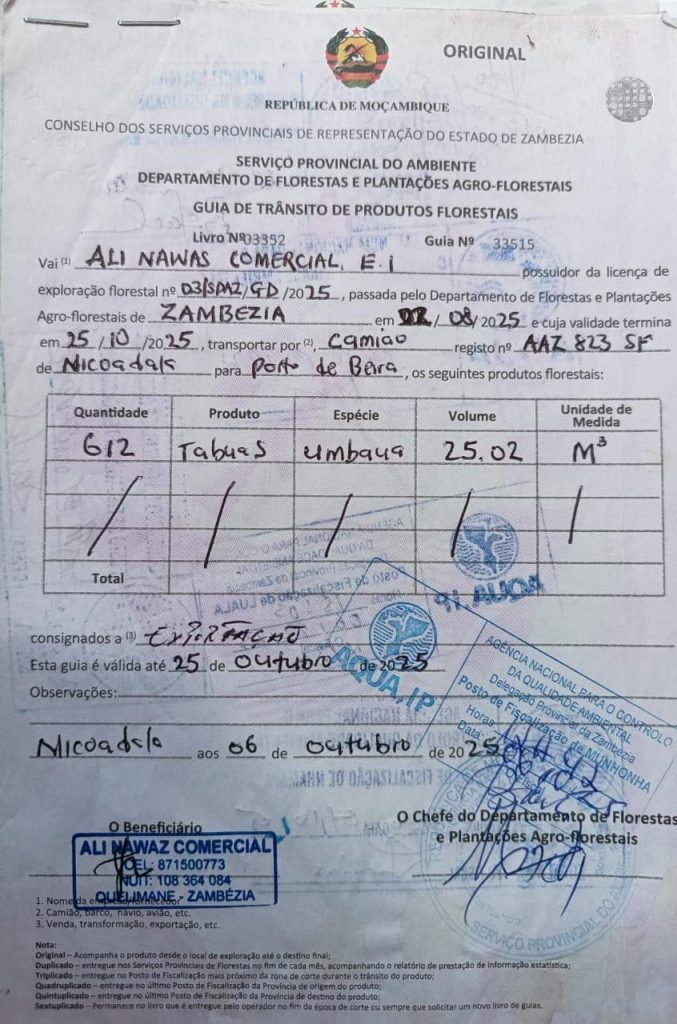 ORIGINAL
REPÚBLICA DE MOÇAMBIQUE
CONSELHO DOS SERVIÇOS PROVINCIAIS DE REPRESENTAÇÃO DO ESTADO DE ZAMBEZIA
SERVIÇO PROVINCIAL DO AMBIENTE
DEPARTAMENTO DE FLORESTAS E PLANTAÇÕES AGRO-FLORESTAIS
GUIA DE TRÂNSITO DE PRODUTOS FLORESTAIS
Livro Nº 03352 Guia Nº 33515
Vai (1) ALI NAWAS COMERCIAL, E.I possuidor da licença de
exploração florestal nº 03/SPAZ/GD /2025, passada pelo Departamento de Florestas e Plantações
Agro-florestais de ZAMBEZIA em 22/08/2025 e cuja validade termina
em 25/10/2025, transportar por (2), Camião registo nº AAZ 823 SF
de Nicoadala para Porto de Beira, os seguintes produtos florestais:
Quantidade Produto Espécie Volume Unidade de Medida
612 Tabuas Umbaua 25.02 M³
Total
consignados a (3) EXPORTAÇÃO
Esta guia é válida até 25 de Outubro de 2025
Observações:
Nicoadala aos 06 de Outubro de 2025
AQUA, IP
AGÊNCIA NACIONAL PARA O CONTROLO
DA QUALIDADE AMBIENTAL
Delegação Provincial da Zambézia
Posto de Fiscalização de MUNHONHA
Hora:
Data:
O Beneficiário
O Chefe do Departamento de Florestas
e Plantações Agro-florestais
ALI NAWAZ COMERCIAL
CEL: 871500773
NUIT: 108 364 084
QUELIMANE - ZAMBÉZIA
SERVIÇO PROVINCIAL DO
1. Nome da empresa/fornecedor
2. Camião, barco, navio, avião, etc.
3. Venda, transformação, exportação, etc.
Nota:
Original – Acompanha o produto desde o local de exploração até o destino final;
Duplicado – entregue nos Serviços Provinciais de Florestas no fim de cada mês, acompanhando o relatório de prestação de informação estatística;
Triplicado – entregue no Posto de Fiscalização mais próximo da zona de corte durante o trânsito do produto;
Quadruplicado – entregue no último Posto de Fiscalização da Província de origem do produto;
Quintuplicado – entregue no último Posto de Fiscalização da Província de destino do produto;
Sextuplicado – Permanece no livro que é entregue pelo operador no fim da época de corte ou sempre que solicitar um novo livro de guias.